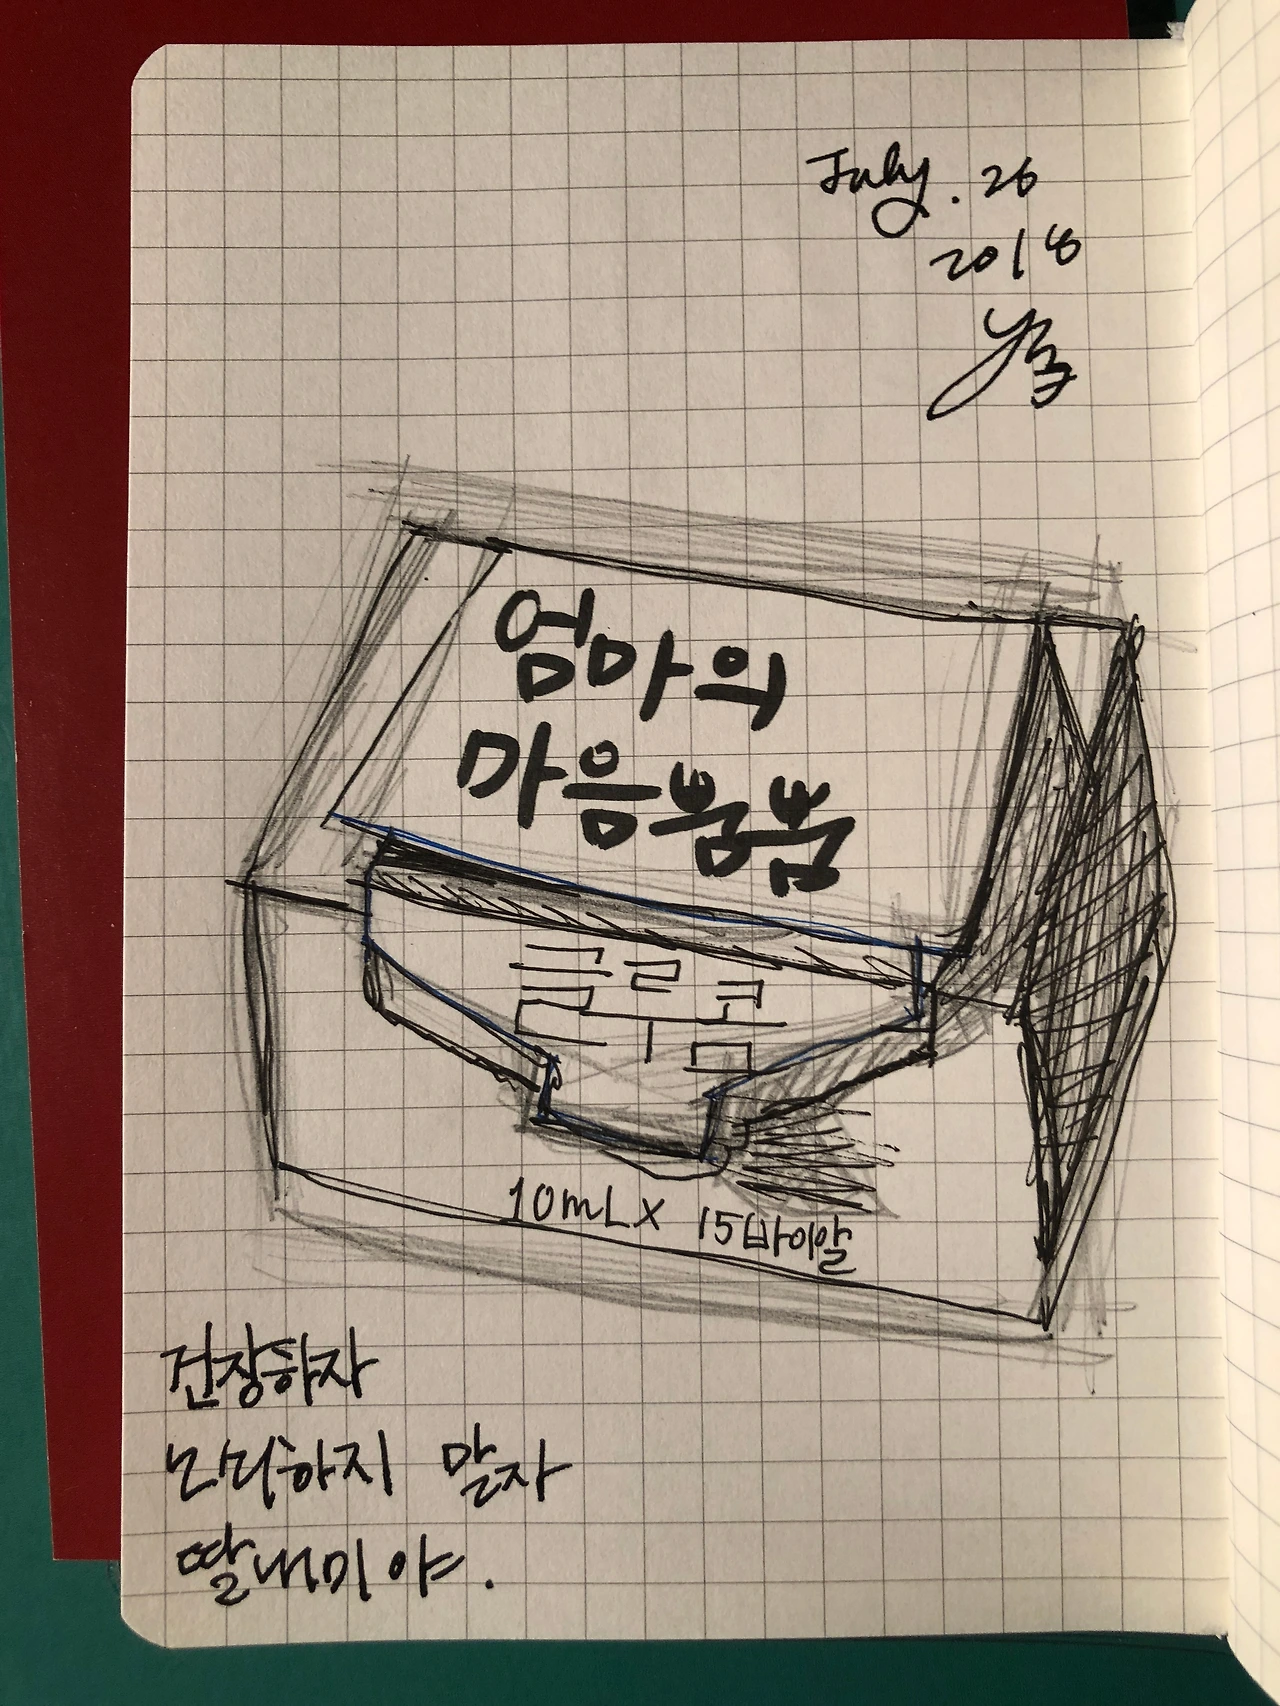 July. 26
2018
엄마의
마음뿜뿜
플로코
10mL x 15바이알
건장하자
나대하지 말자
딸내미야.